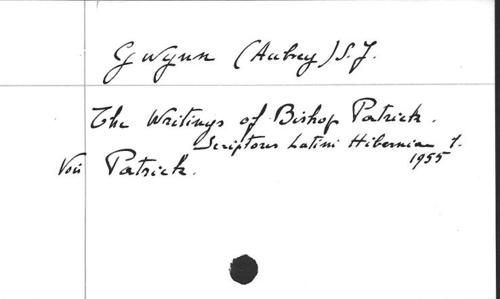 Gwynn (Aubrey) S.J.
The Writings of Bishop Patrick.
Scriptores Latini Hiberniae 1.
1955
Voir Patrick.